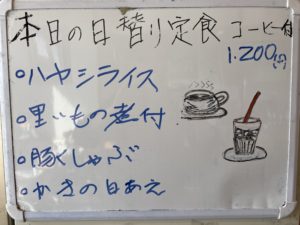 本日の日替り定食 コーヒー付
1.200(円)
・ハヤシライス
・里いもの煮付
・豚しゃぶ
・かきの白あえ